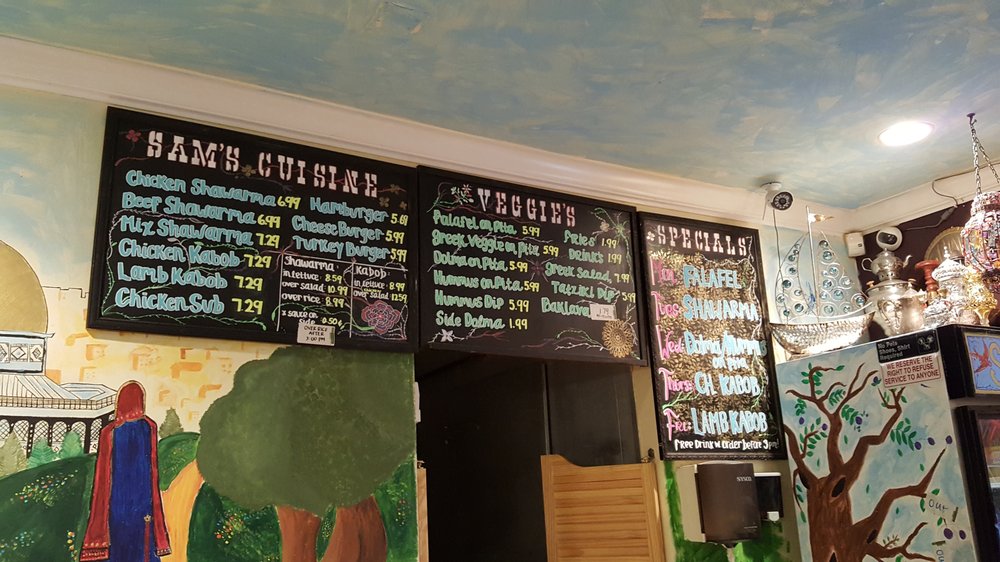 SAM'S CUISINE
Chicken Shawarma 6.99
Beef Shawarma 6.99
Mix Shawarma 7.29
Chicken Kabob 7.29
Lamb Kabob 7.29
Chicken Sub 7.29
Hamburger 5.69
Cheese Burger 5.99
Turkey Burger 5.99
Shawarma
in lettuce 8.50
over salad 10.50
over rice 8.99
x sauce on
0.50¢
OVER RICE
AFTER
3:00 PM
Kabob
in lettuce 8.99
over salad 12.50
VEGGIE'S
Falafel on Pita 5.99
Greek Veggie on Pita 5.99
Dolma on Pita 5.99
Hummus on Pita 5.99
Hummus Dip 5.99
Side Dolma 1.99
Fries 1.99
Drink's 1.99
Greek Salad 7.99
Tatziki Dip 5.99
Baklava
SPECIALS
Mon: FALAFEL
Tues: SHAWARMA
Wed: Dolma/Hummus
on Pita
Thurs: CH. KABOB
Fri: LAMB KABOB
Free Drink w. order before 3pm!
No Pets
Shoes, Shirt
Required
WE RESERVE THE
RIGHT TO REFUSE
SERVICE TO ANYONE
SYSCO
our